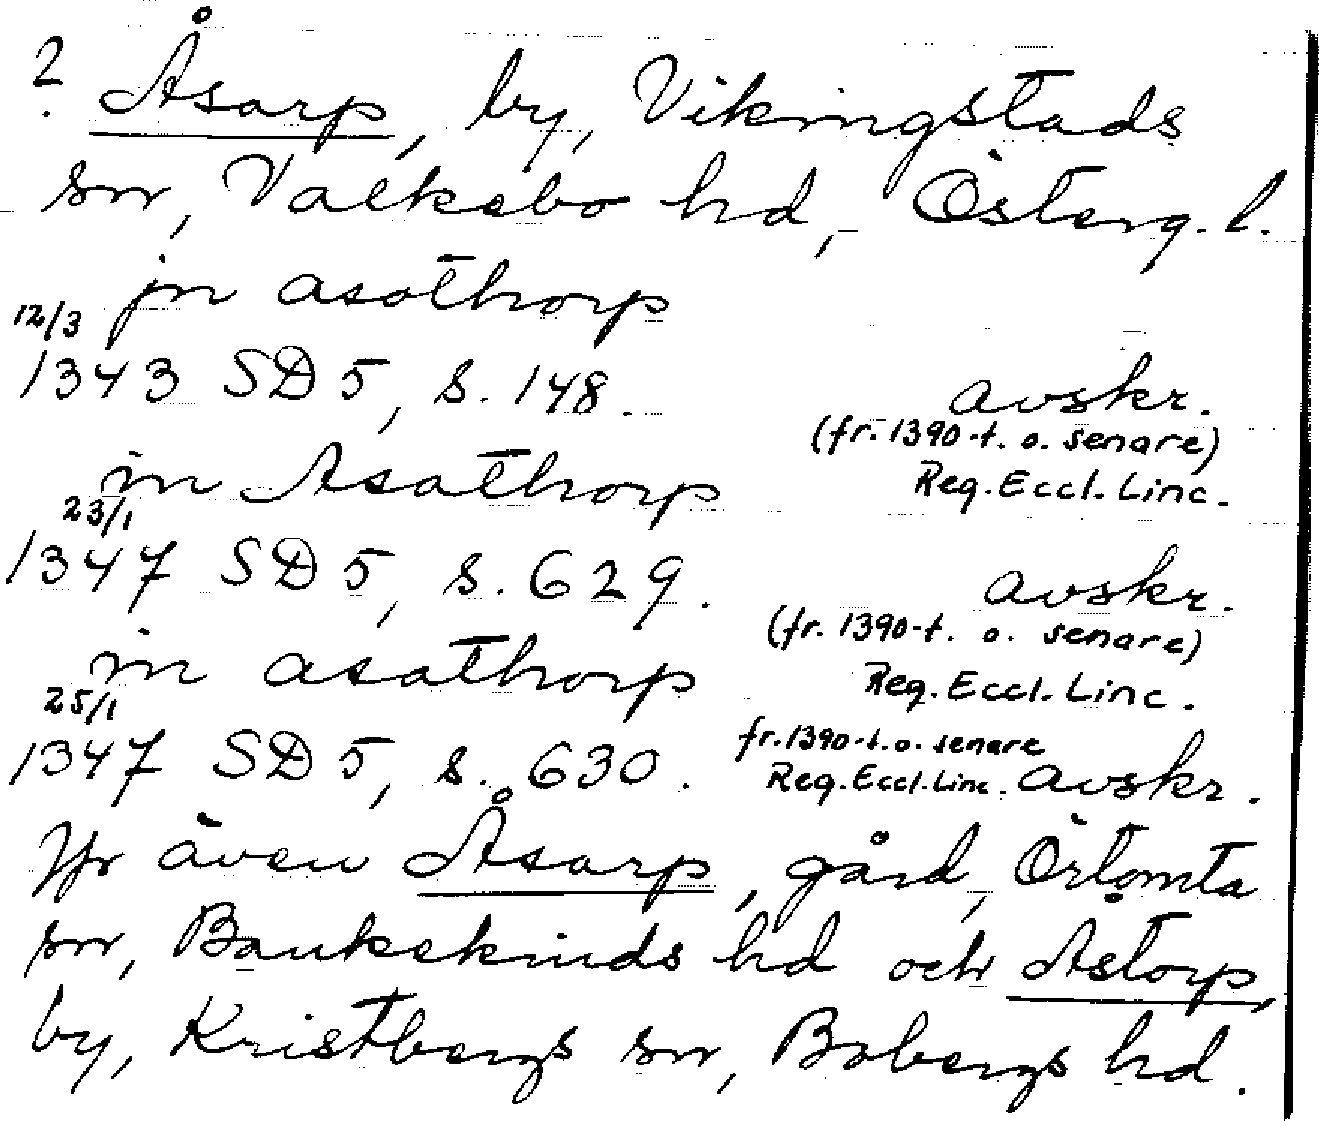 ? Åsarp, by, Vikingstads
sn, Valkebo hd, Österg. l.
jn asathorp
12/3
1343 SD 5, s. 148. avskr.
(fr. 1390-t. o. senare)
in Asathorp Reg. Eccl. Linc.
23/1
1347 SD 5, s. 629. avskr.
(fr. 1390-t. o. senare)
in asathorp Reg. Eccl. Linc.
25/1
fr. 1390-t. o. senare
1347 SD 5, s. 630. Reg. Eccl. Linc. avskr.
Jfr även Åsarp, gård, Örtomta
sn, Bankekinds hd och Astorp,
by, Kristbergs sn, Bobergs hd.